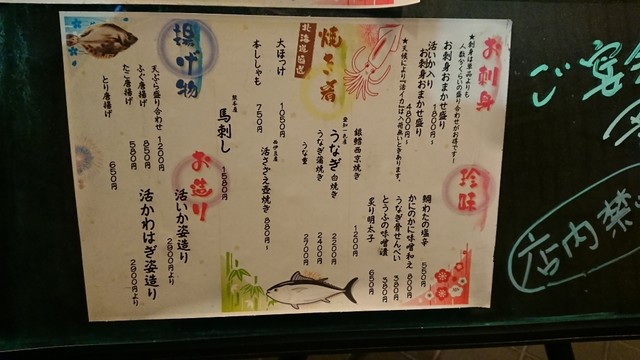 お刺身
★お刺身は単品よりも
人数分くらいの盛り合わせがお得です!
お刺身おまかせ盛り
1800円〜
活いか入り
お刺身おまかせ盛り
4800円〜
★天候により「活イカ」は入荷無いときあります。
珍味
鯛わたの塩辛 550円
かにのかに味噌和え 800円
うなぎ骨せんべい 380円
とうふの味噌漬 380円
炙り明太子 650円
焼き肴
銀鱈西京焼き 1200円
愛知一色産
うなぎ 白焼き 2200円
うなぎ蒲焼き 2400円
うな重 2700円
北海道直送
大ほっけ 1050円
本ししゃも 750円
活さざえ壺焼き 880円〜
熊本産
馬刺し 1580円
揚げ物
天ぷら盛り合わせ 1200円
ふぐ唐揚げ 850円
たこ唐揚げ 580円
とり唐揚げ 650円
お造り
活いか姿造り
2900円より
活かわはぎ姿造り
2900円より
ご宴会
店内禁